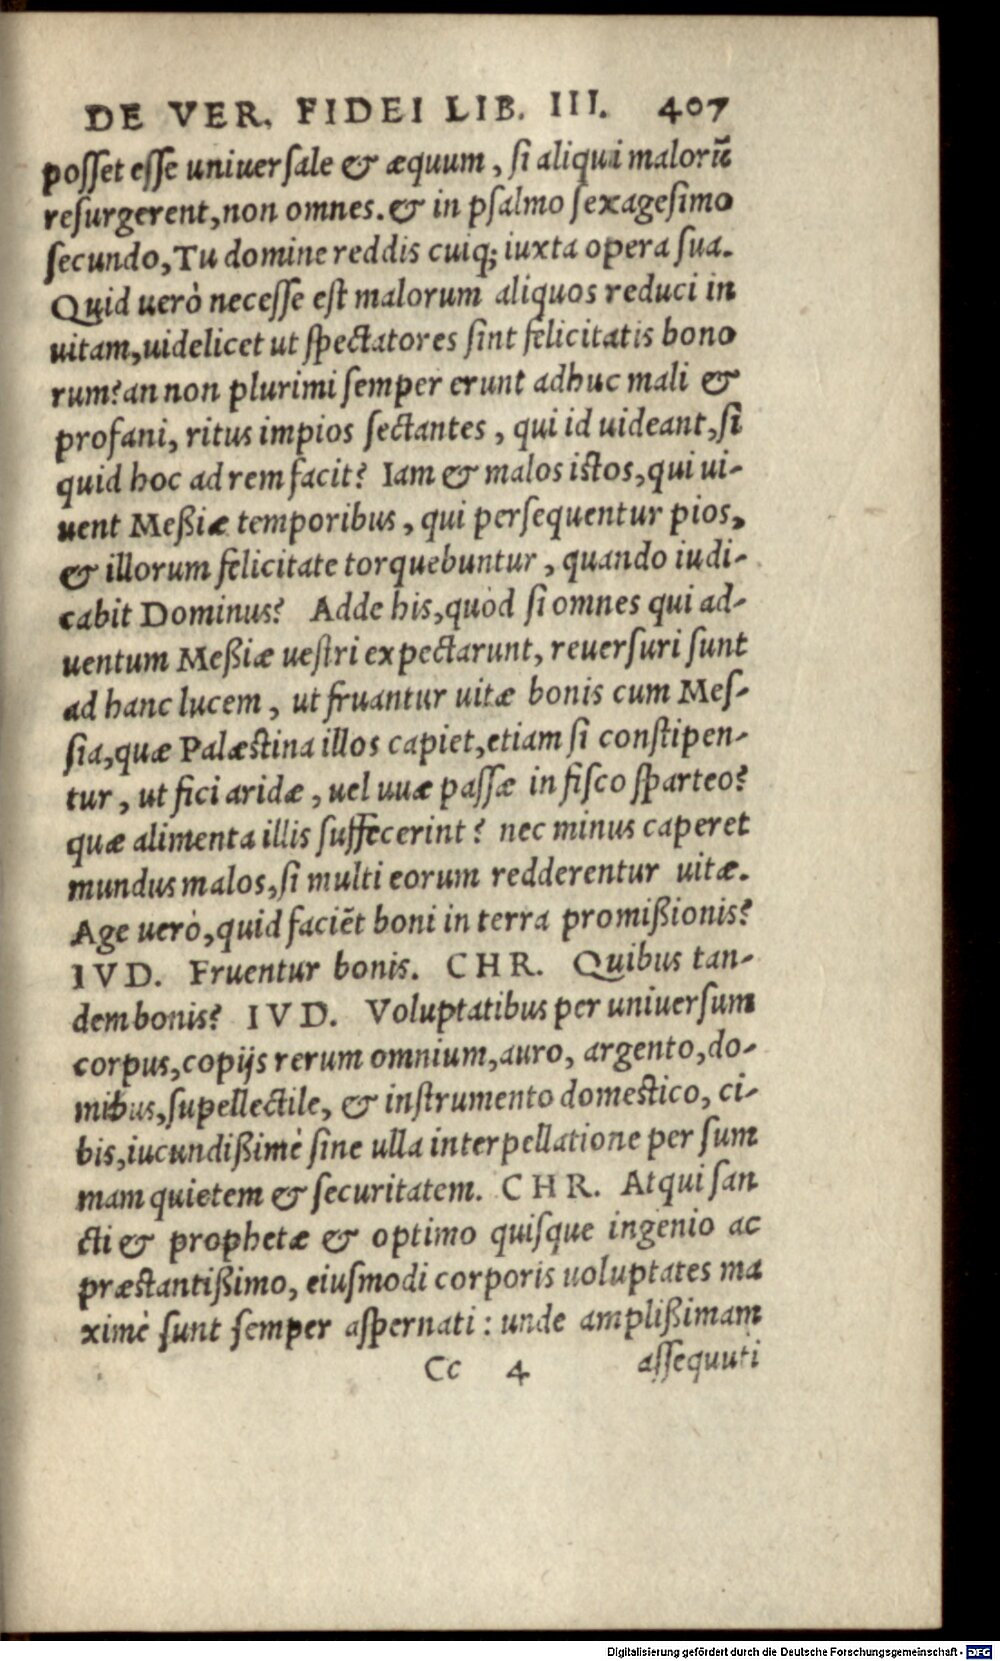 DE VER. FIDEI LIB. III. 407
posset esse uniuersale & æquum, si aliqui malorū
resurgerent, non omnes. & in psalmo sexagesimo
secundo, Tu domine reddis cuiq; iuxta opera sua.
Quid uerò necesse est malorum aliquos reduci in
uitam, uidelicet ut spectatores sint felicitatis bono
rum? an non plurimi semper erunt adhuc mali &
profani, ritus impios sectantes, qui id uideant, si
quid hoc ad rem facit? Iam & malos istos, qui ui-
uent Meßiæ temporibus, qui persequentur pios,
& illorum felicitate torquebuntur, quando iudi-
cabit Dominus? Adde his, quòd si omnes qui ad-
uentum Meßiæ uestri expectarunt, reuersuri sunt
ad hanc lucem, ut fruantur uitæ bonis cum Mes-
sia, quæ Palæstina illos capiet, etiam si constipen-
tur, ut fici aridæ, uel uuæ passæ in fisco sparteo?
quæ alimenta illis suffecerint? nec minus caperet
mundus malos, si multi eorum redderentur uitæ.
Age uerò, quid faciēt boni in terra promißionis?
IVD. Fruentur bonis. CHR. Quibus tan-
dem bonis? IVD. Voluptatibus per uniuersum
corpus, copijs rerum omnium, auro, argento, do-
mibus, supellectile, & instrumento domestico, ci-
bis, iucundißimè sine ulla interpellatione per sum
mam quietem & securitatem. CHR. Atqui san
cti & prophetæ & optimo quisque ingenio ac
præstantißimo, eiusmodi corporis uoluptates ma
ximè sunt semper aspernati: unde amplißimam
Cc 4 assequuti
Digitalisierung gefördert durch die Deutsche Forschungsgemeinschaft - DFG